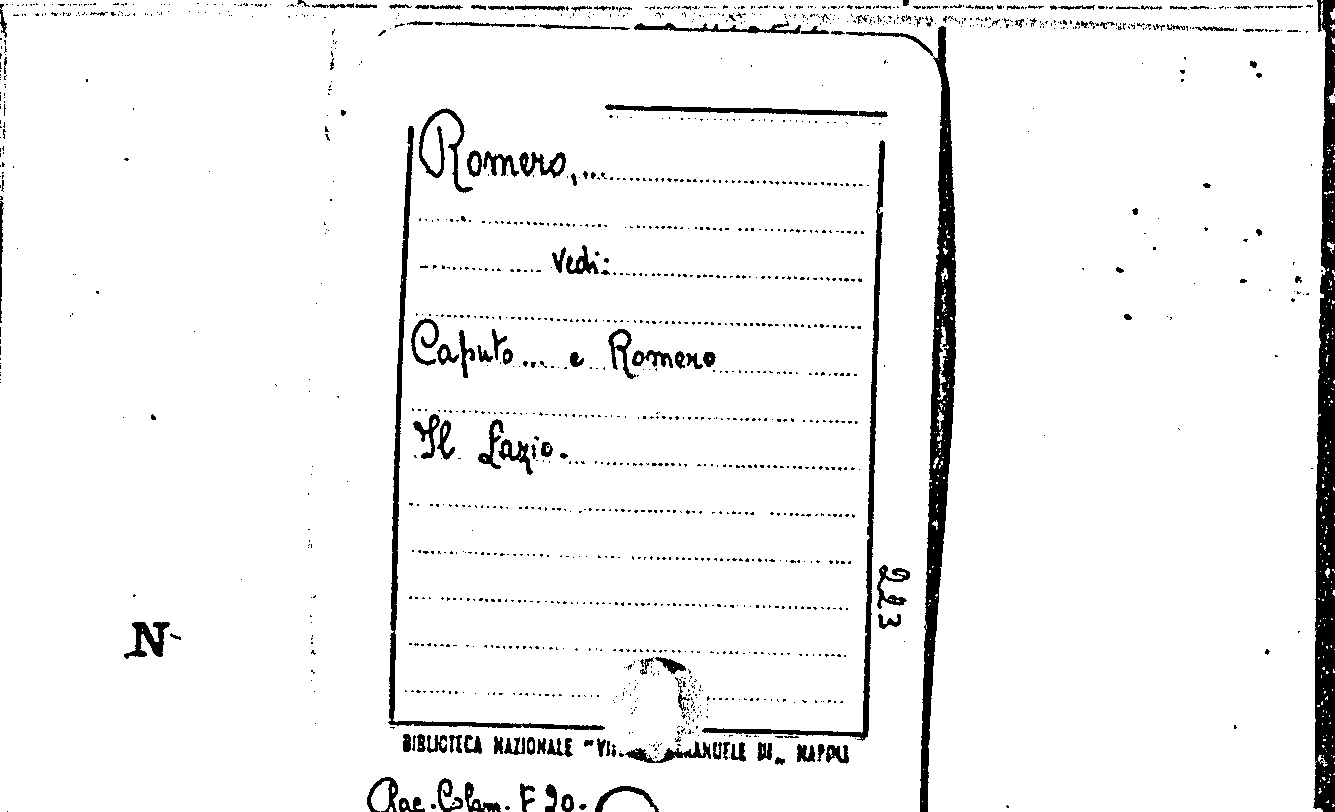 Romero,...
Vedi:
Caputo... e Romero
Il Lazio.
223
N
BIBLIOTECA NAZIONALE " EMANUELE III„ NAPOLI
Rac. Colam. F 20.